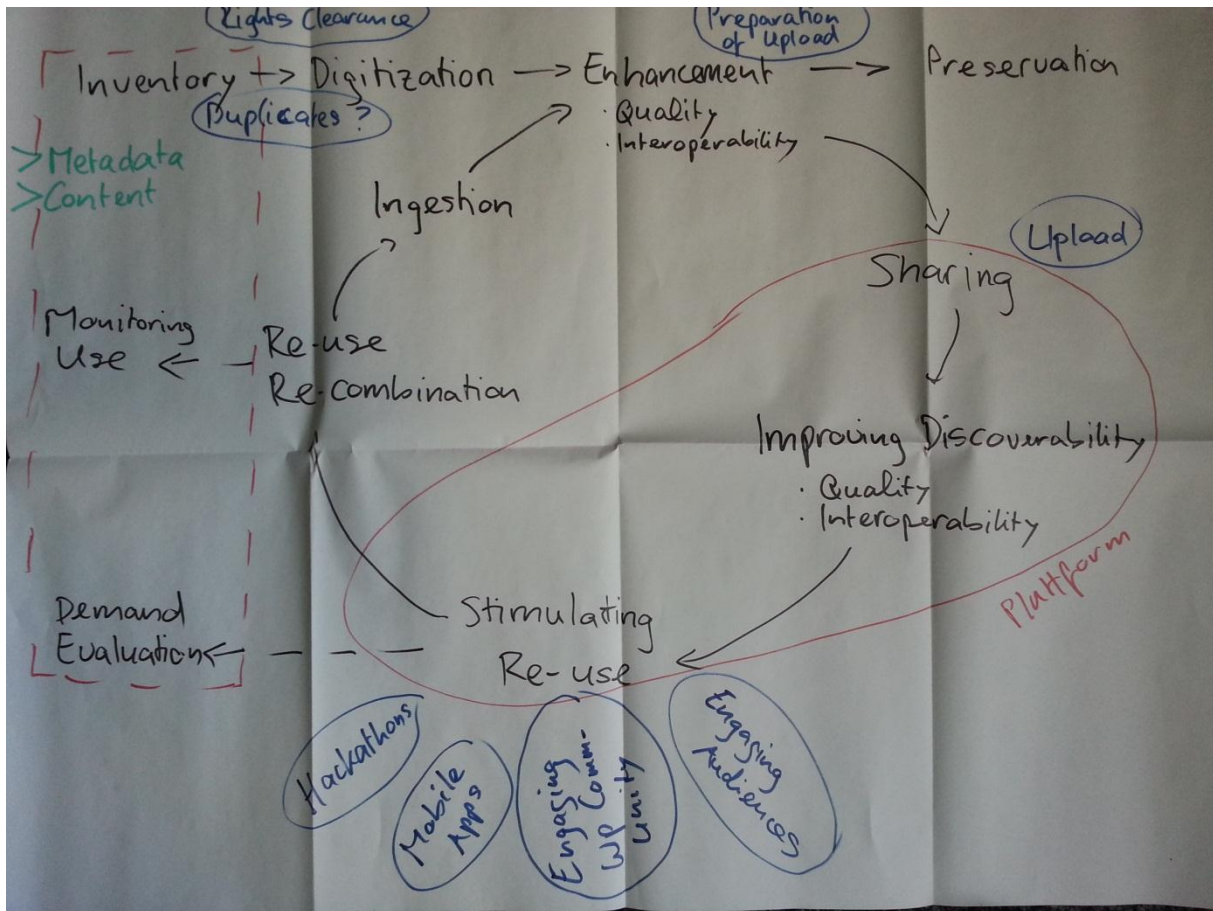 Rights Clearance
Preparation
of Upload
Inventory → Digitization → Enhancement → Preservation
Duplicates?
· Quality
· Interoperability
> Metadata
> Content
Ingestion
Upload
Sharing
Monitoring
Use
Re-use
Re-combination
Improving Discoverability
· Quality
· Interoperability
Plattform
Demand
Evaluation
Stimulating
Re-use
Hackathons
Mobile
Apps
Engaging
WP Comm-
unity
Engaging
Audiences